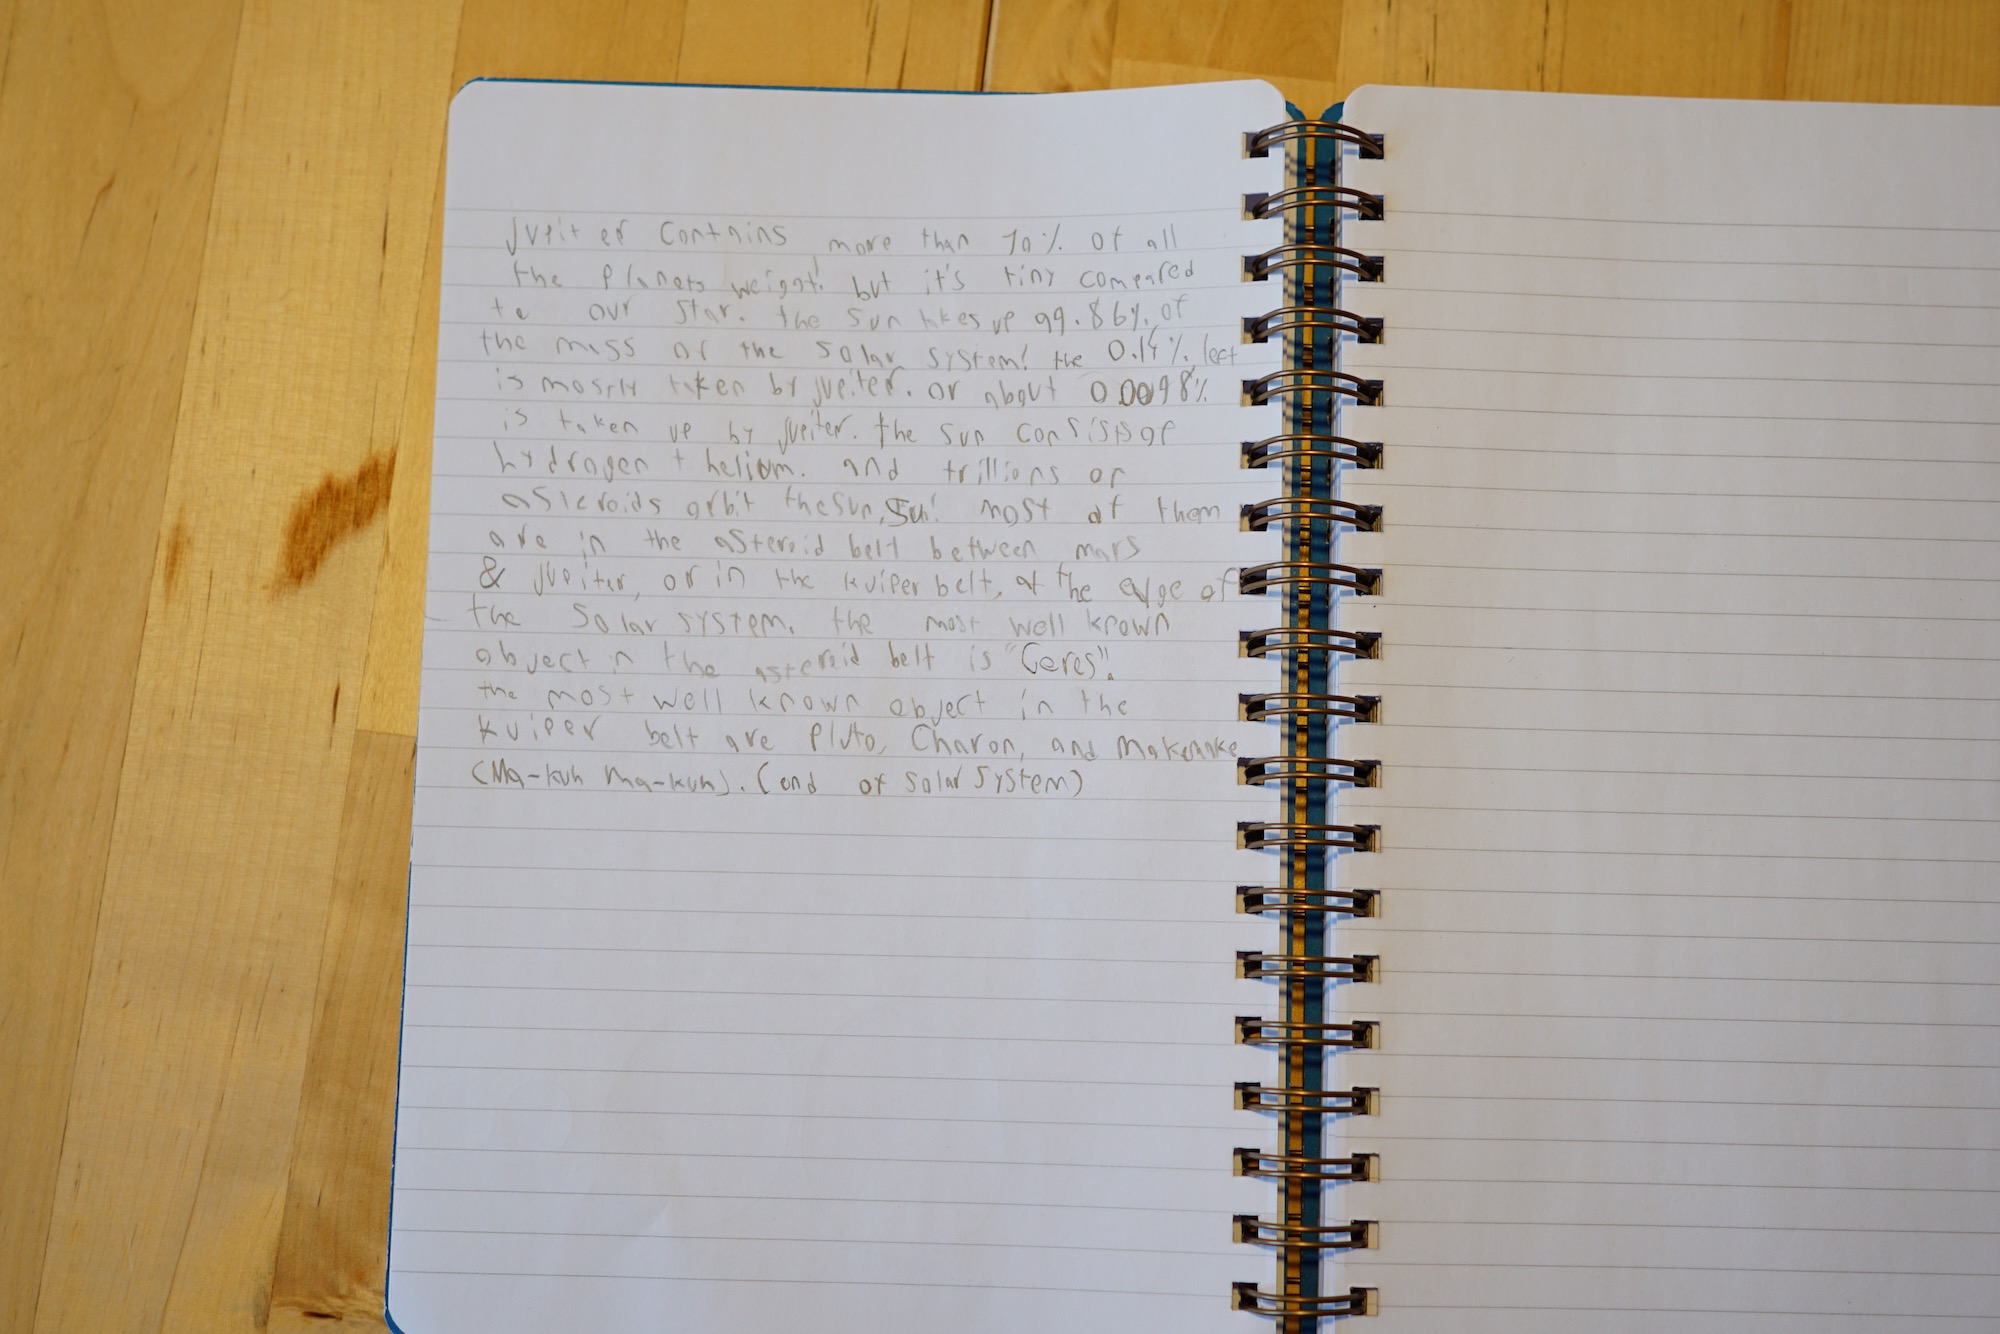 Jupiter contains more than 70% of all
the planets weight! but it's tiny compared
to our star. the sun takes up 99.86% of
the mass of the solar system! the 0.14% left
is mostly taken by jupiter. or about 0.0098%
is taken up by jupiter. the sun consists of
hydrogen + helium. and trillions of
asteroids orbit the sun, sun! most of them
are in the asteroid belt between mars
& jupiter, or in the kuiper belt, at the edge of
the solar system. the most well known
object in the asteroid belt is "Ceres".
the most well known object in the
kuiper belt are pluto, Charon, and Makemake
(Ma-kuh Ma-kuh). (end of solar system)